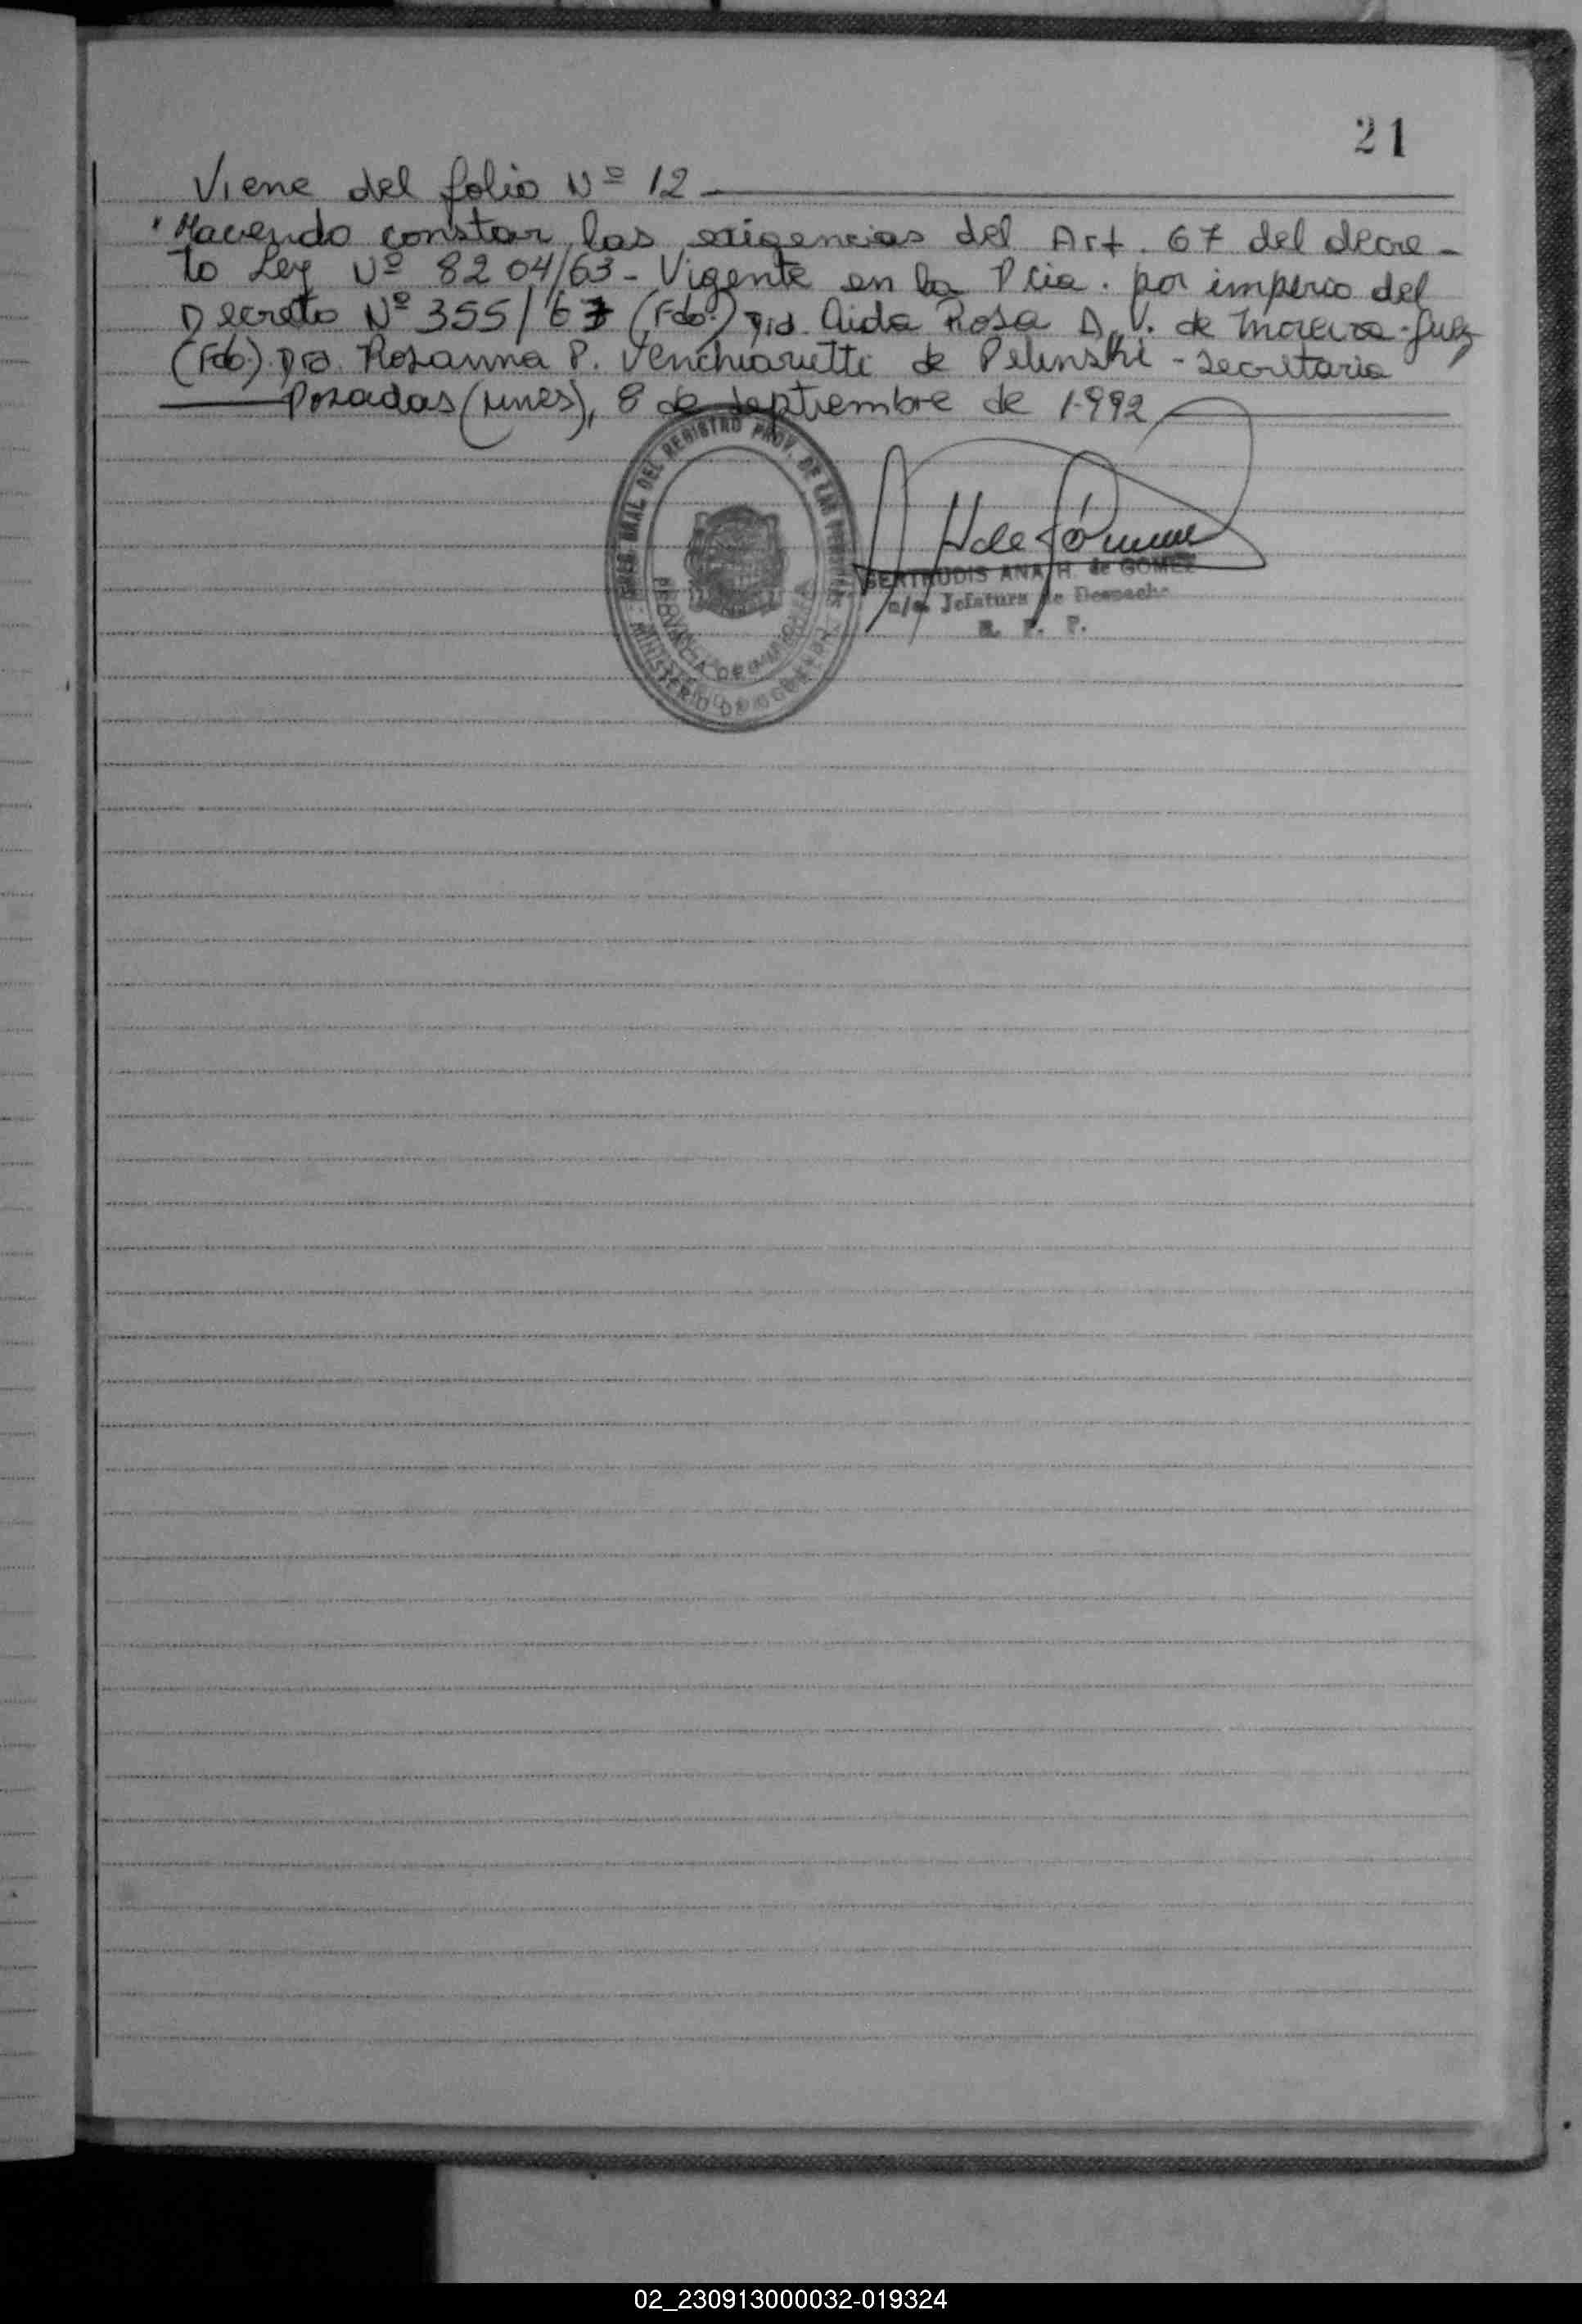 21
Viene del folio Nº 12
"Haciendo constar las exigencias del Art. 67 del decre-
to Ley Nº 8204/63 - Vigente en la Pcia. por imperio del
Decreto Nº 355/67 (Fdo.) Dra. Aida Rosa D. V. de Moreira - Juez
(Fdo.) Dra. Rosanna P. Venchiarutti de Pelinski - secretaria
Posadas (Mnes), 8 de septiembre de 1.992
DEL REGISTRO PROV. DE LAS PERSONAS
PROVINCIA DE
MINISTERIO DE
H de Gómez
GERTRUDIS ANA H. de GOMEZ
a/c Jefatura de Despacho
R. P. P.
02_230913000032-019324